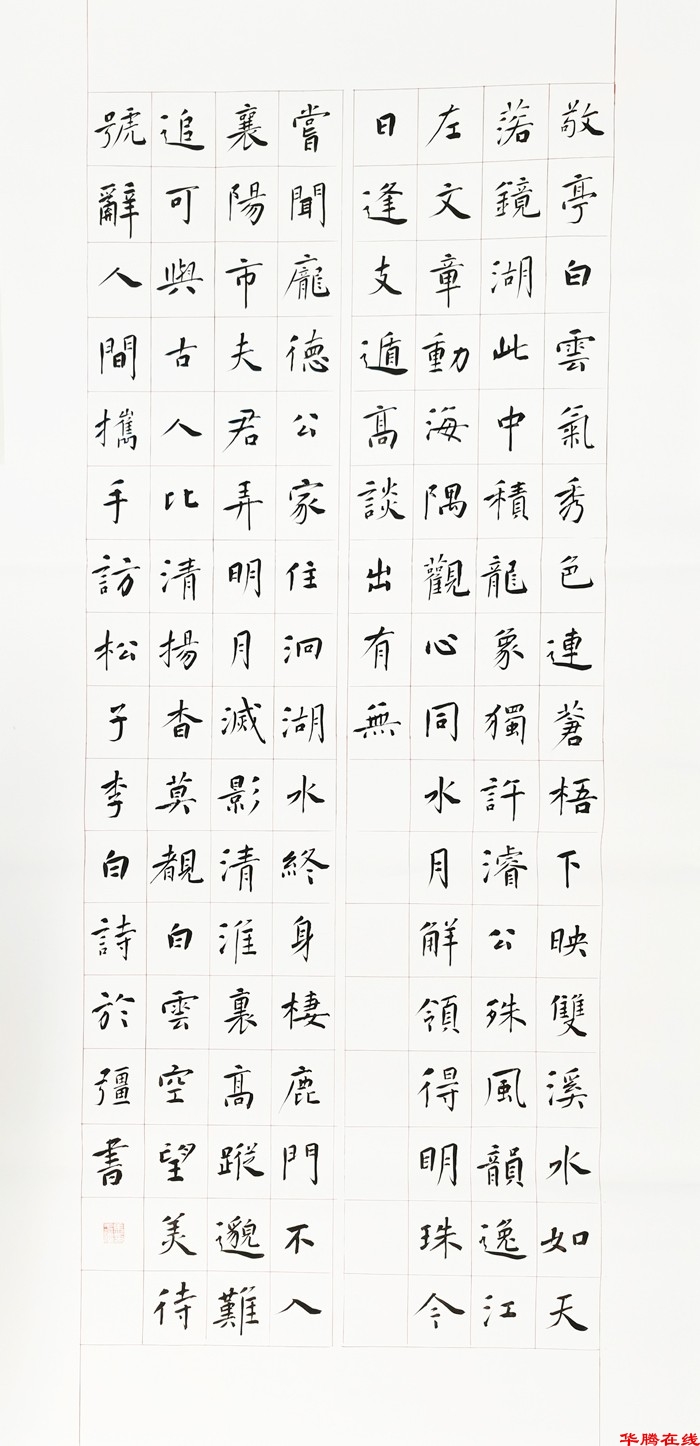 敬亭白雲氣秀色連蒼梧下映雙溪水如天
落鏡湖此中積龍象獨許濬公殊風韻逸江
左文章動海隅觀心同水月解領得明珠今
日逢支遁高談出有無
嘗聞龐德公家住洞湖水終身棲鹿門不入
襄陽市夫君弄明月滅影清淮裏高蹤邈難
追可與古人比清揚杳莫覩白雲空望美待
號辭人間攜手訪松子李白詩於彊書
华腾在线